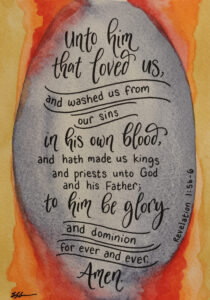 unto him
that loved us,
and washed us from
our sins
in his own blood,
and hath made us kings
and priests unto God
and his Father;
to him be glory
and dominion
for ever and ever.
Amen
Revelation 1:5b-6